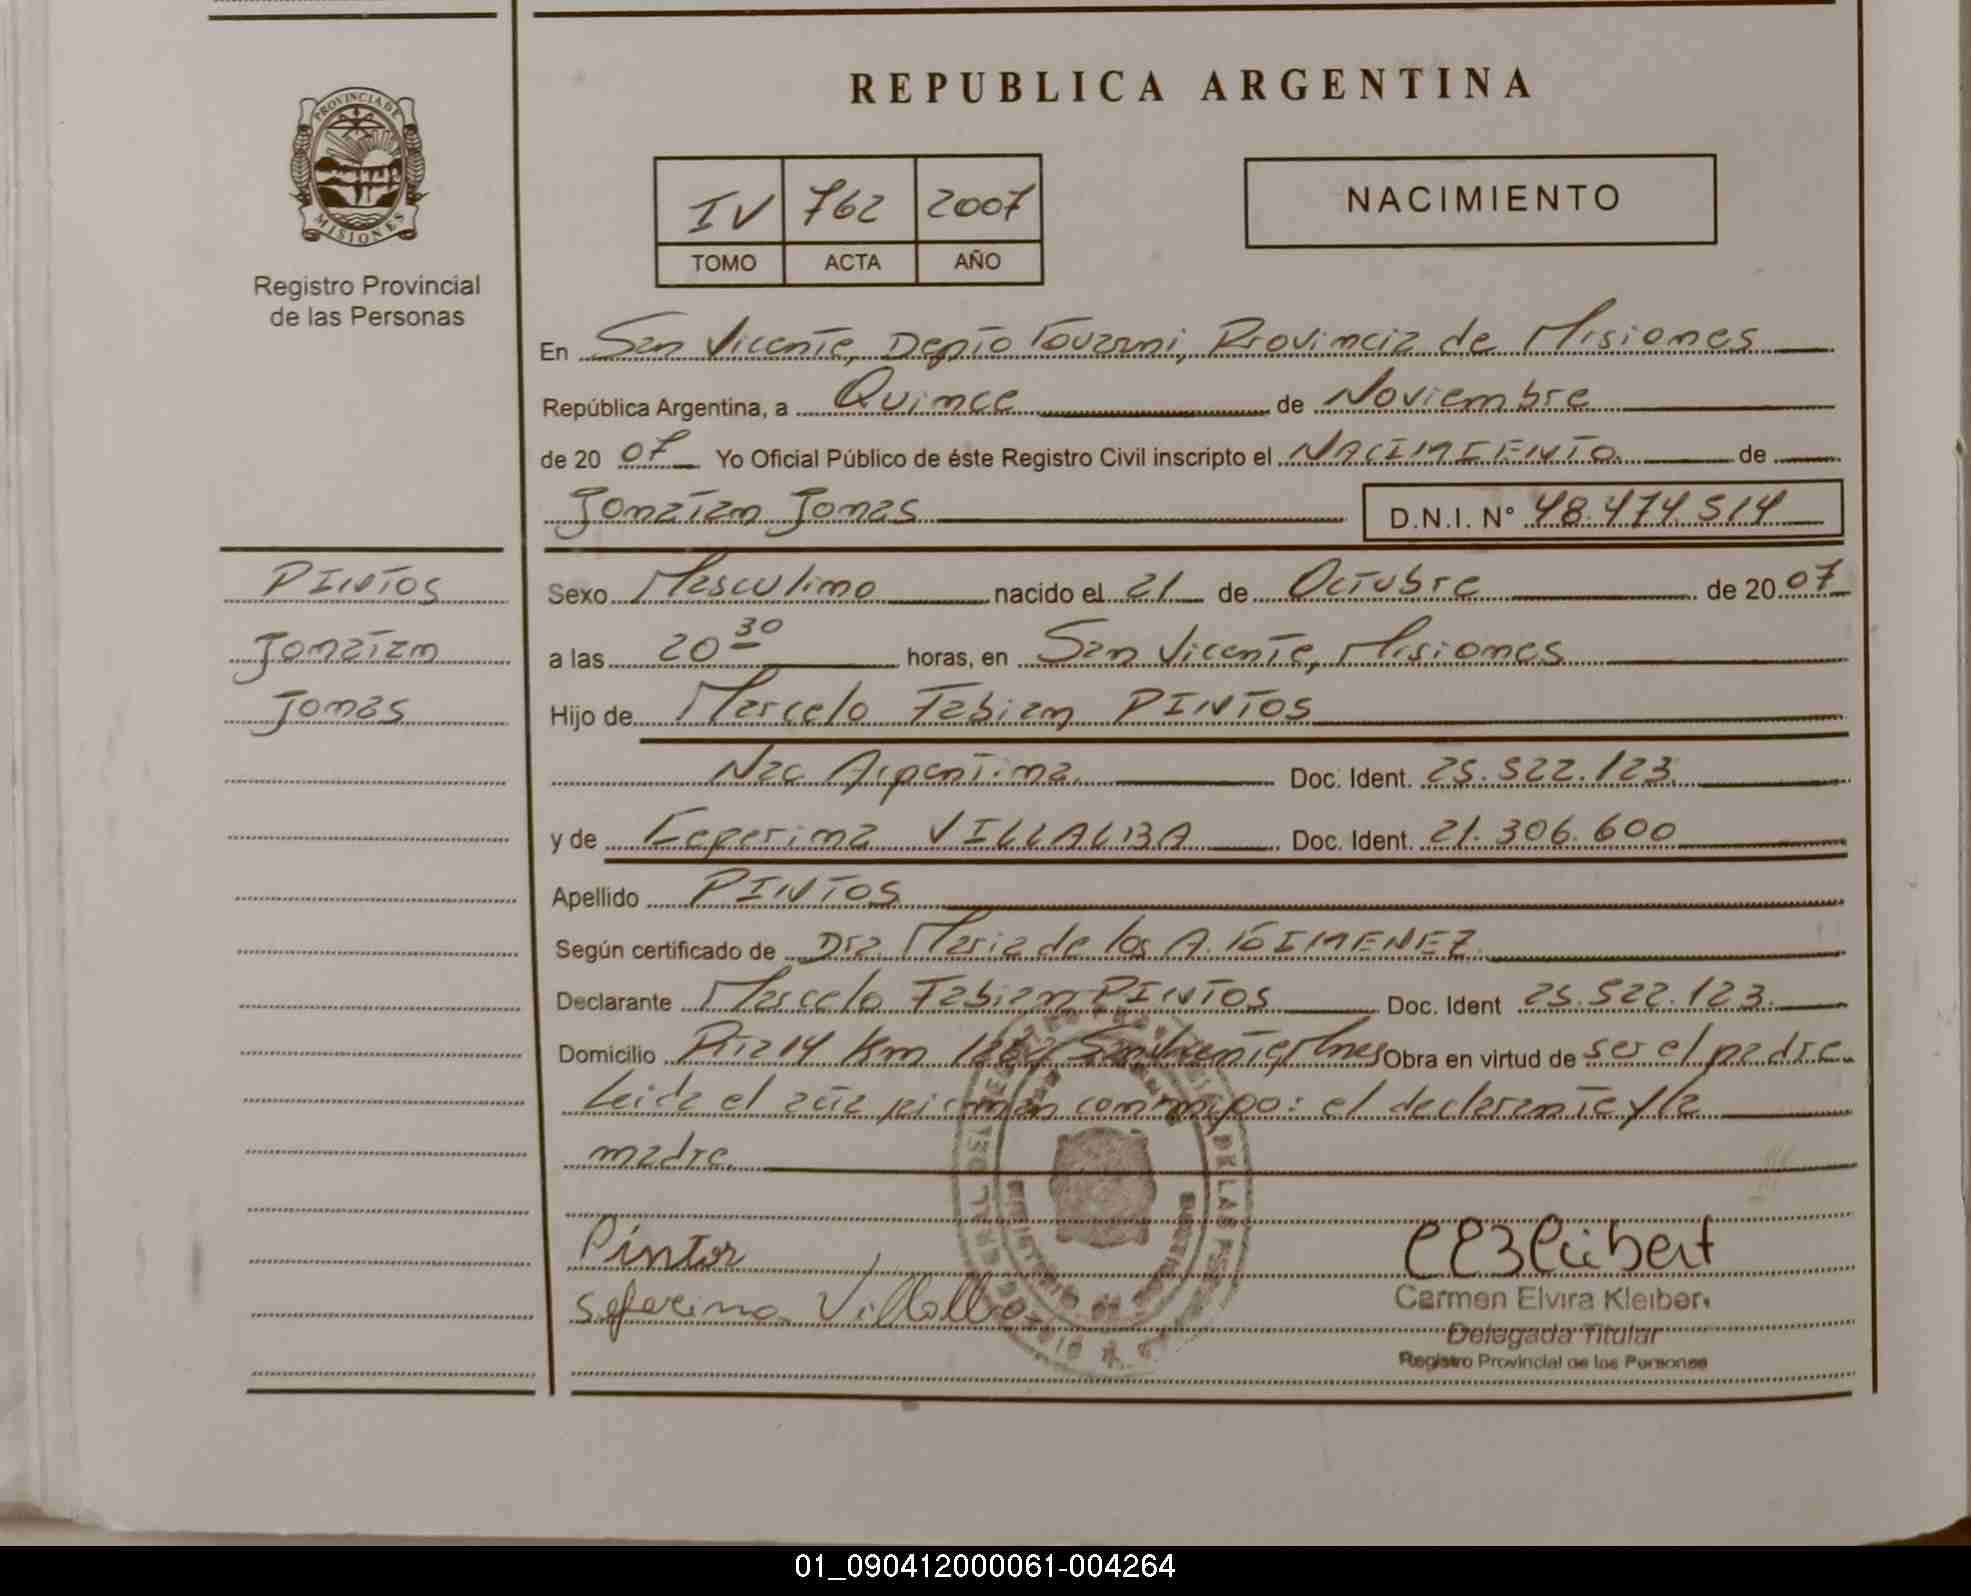 REPUBLICA ARGENTINA
PROVINCIA DE
MISIONES
Registro Provincial
de las Personas
IV 762 2007
TOMO ACTA AÑO
NACIMIENTO
En San Vicente, Depto Guarani, Provincia de Misiones
República Argentina, a Quince de Noviembre
de 20 07 Yo Oficial Público de éste Registro Civil inscripto el NACIMIENTO de
Jonatan Jonas D.N.I. N° 48.474.514
PINTOS
Jonatan
Jonas
Sexo Masculino nacido el 21 de Octubre de 20 07
a las 20 30 horas, en San Vicente, Misiones
Hijo de Marcelo Fabian PINTOS
Nac Argentina. Doc. Ident. 25.522.123
y de Ceperina VILLALBA Doc. Ident. 21.306.600
Apellido PINTOS
Según certificado de Dra. Maria de los A. GIMENEZ
Declarante Marcelo Fabian PINTOS Doc. Ident 25.522.123.
Domicilio Rta 14 Km 1282 San Vicente, Mnes Obra en virtud de ser el padre.
Leida el acta firman conmigo: el declarante y la
madre.
Pintos
Seferina Villalba
Carmen Elvira Kleiber
Delegada Titular
Registro Provincial de las Personas
01_090412000061-004264